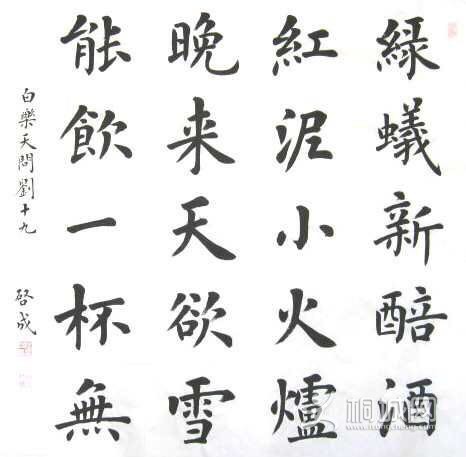 綠蟻新醅酒
紅泥小火爐
晚来天欲雪
能飲一杯無
白樂天問劉十九
啓成
桐城网